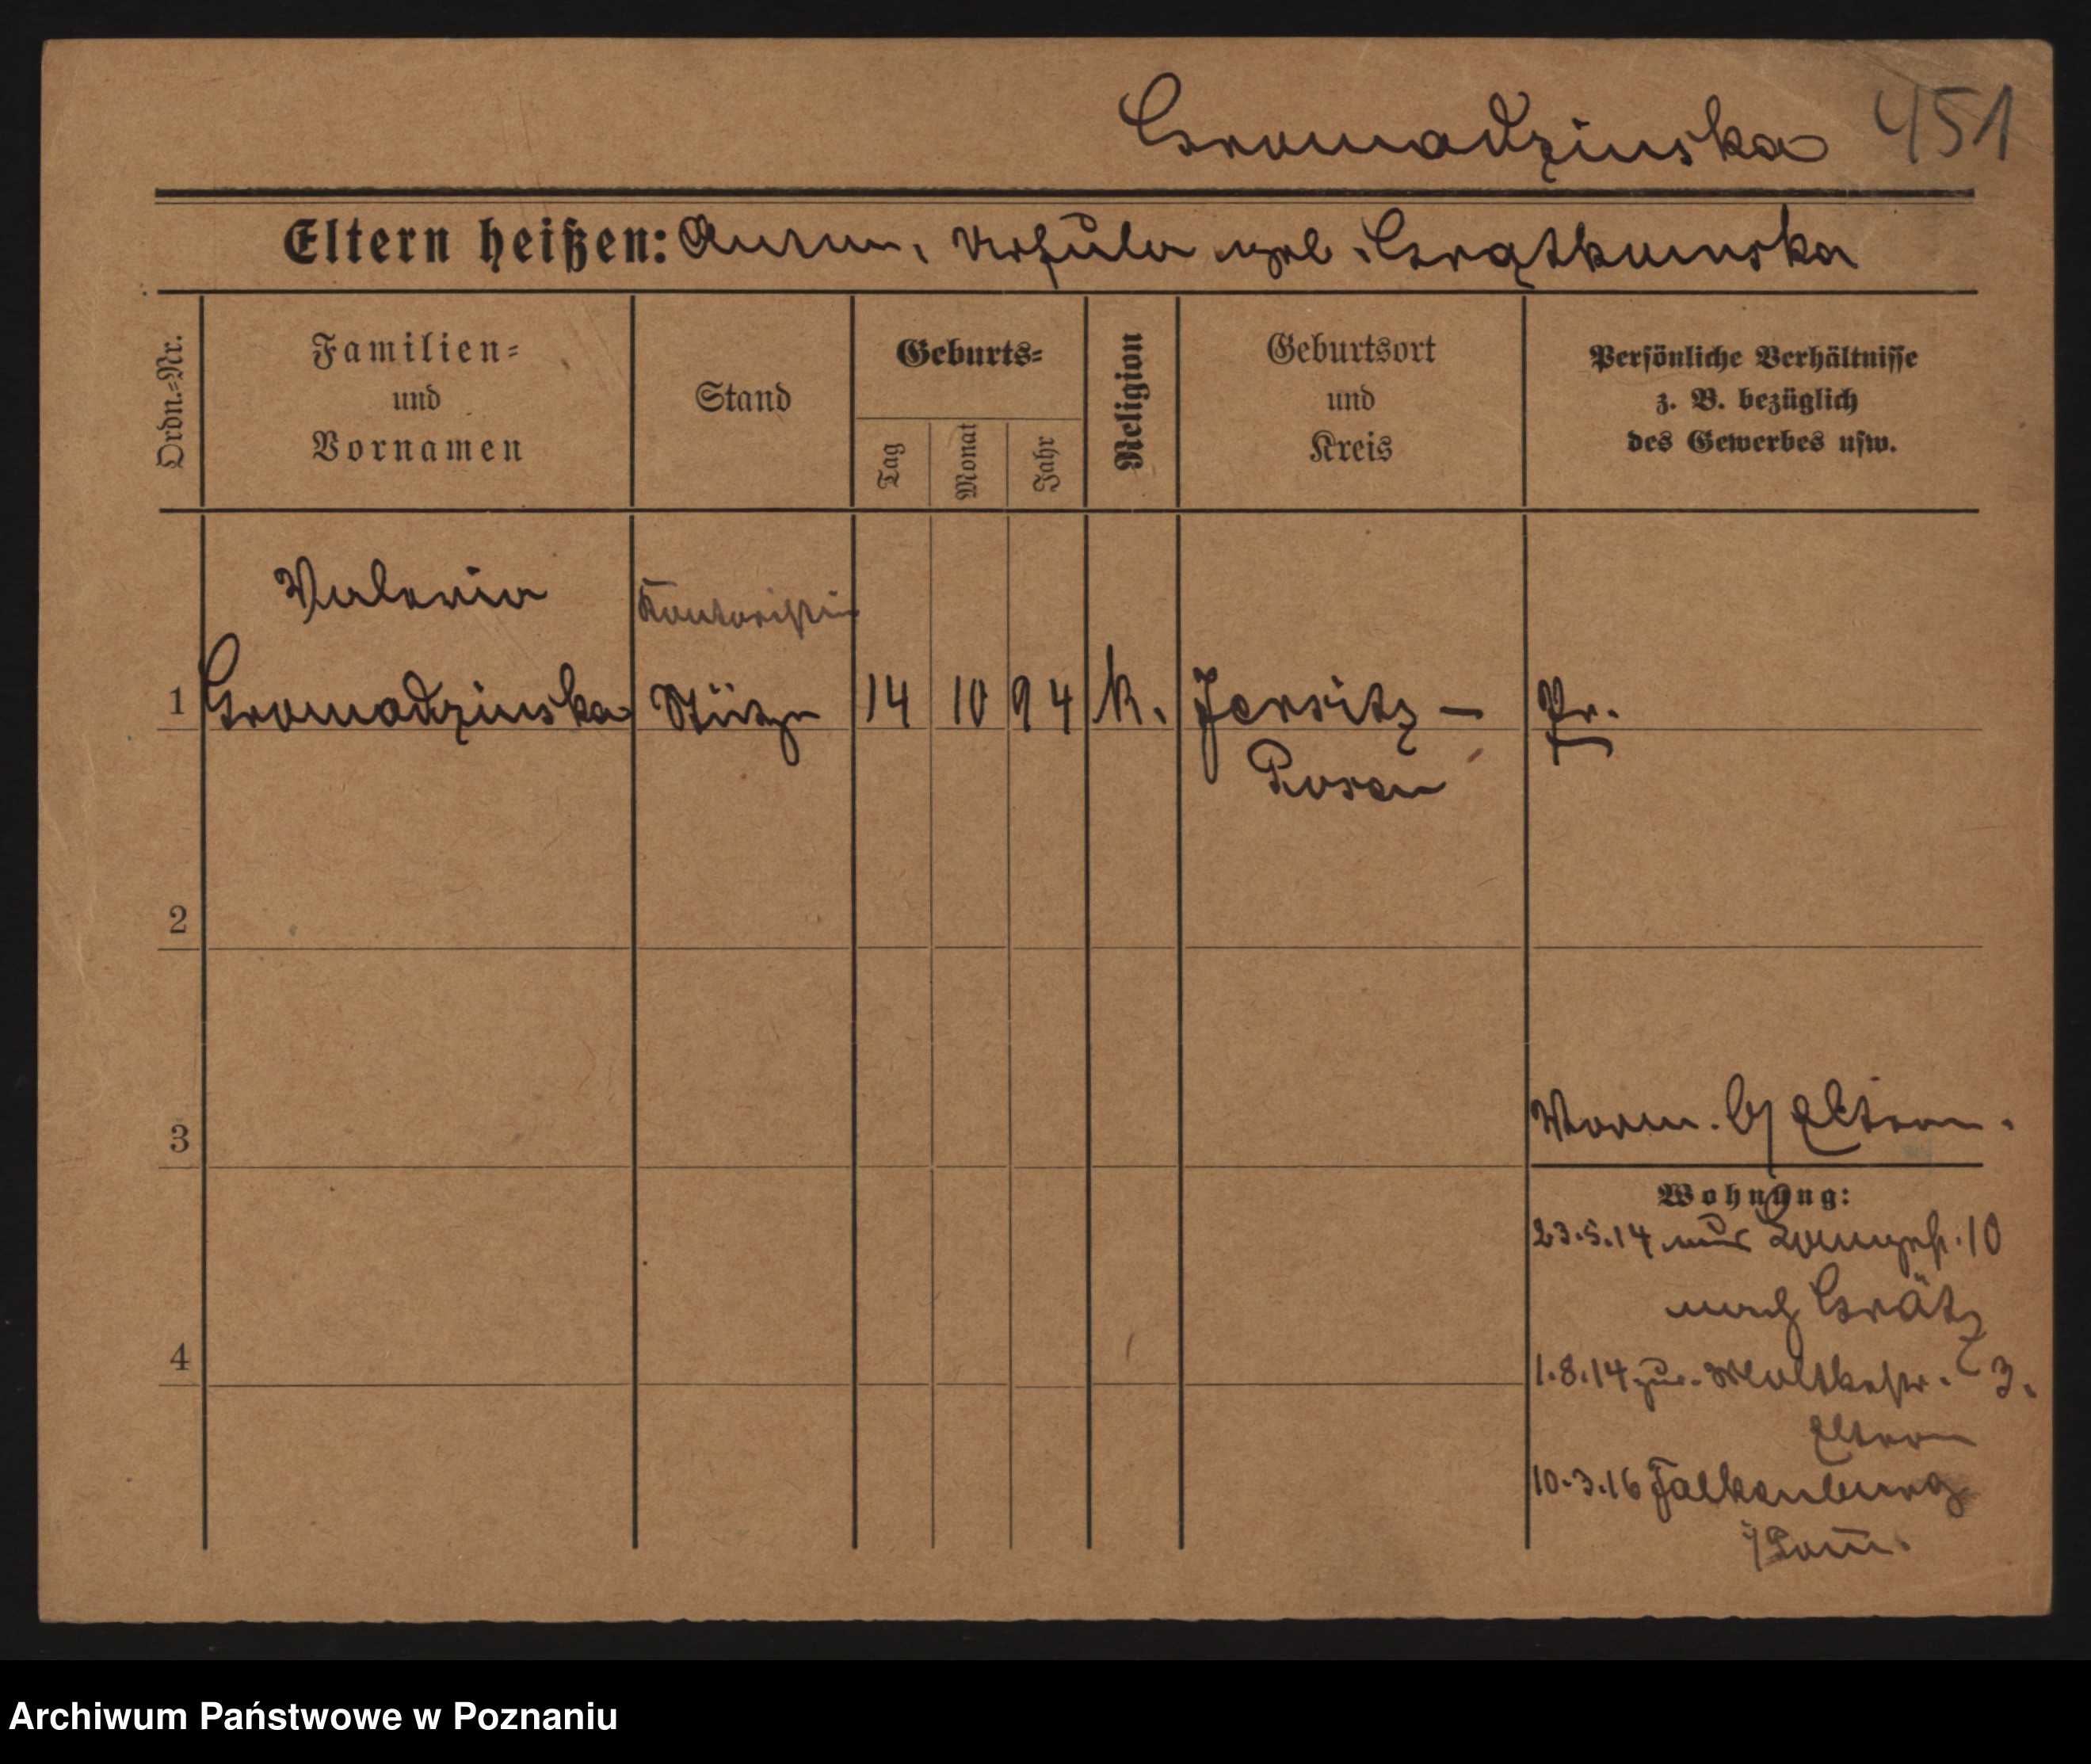 Gromadzinska 451
Eltern heißen: Ursula geb. Grątkowska
Ordn.-Nr.
Familien-
und
Vornamen
Stand
Geburts-
Tag
Monat
Jahr
Religion
Geburtsort
und
Kreis
Persönliche Verhältnisse
z. B. bezüglich
des Gewerbes usw.
Valeria
Kontoristin
1 Gromadzinska Stütze 14 10 94 k. Jersitz –
Pr.
Posen
2
3
Vorm. bj Eltern.
Wohnung:
23.5.14 aus Langestr. 10
nach Grätz
4
1.8.14 zur. Moltkestr. 3.
Eltern
10.3.16 Falkenburg
i/Pom.
Archiwum Państwowe w Poznaniu